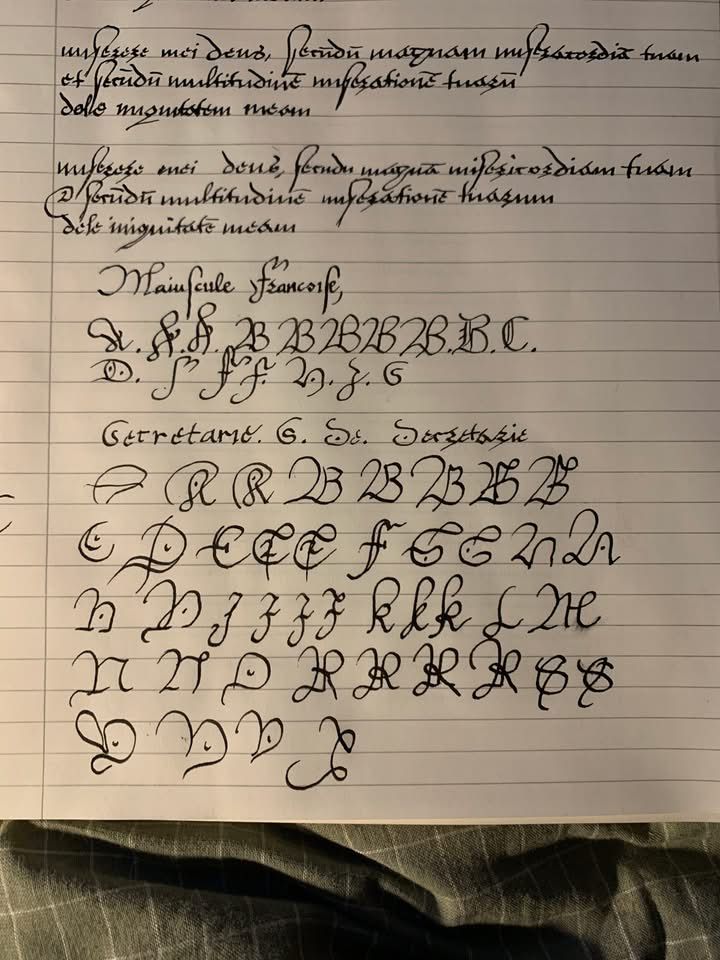 miserere mei deus, secūdū magnam misericordiā tuam
et secūdū multitudinē miserationē tuarū
dele iniquitatem meam
miserere mei deus, secundu magnā misericordiam tuam
et secūdū multitudinē miserationē tuarum
dele iniquitatē meam
Maiuscule francoise,
A. A. A. B B B B B. B. C.
D. f ff. H. J. G
Secretarie. G. Se. Secretarie
A A B B B B B
C D E E E F G G H H
H J J J J k k k L M
N N O R R R R S S
V V V X